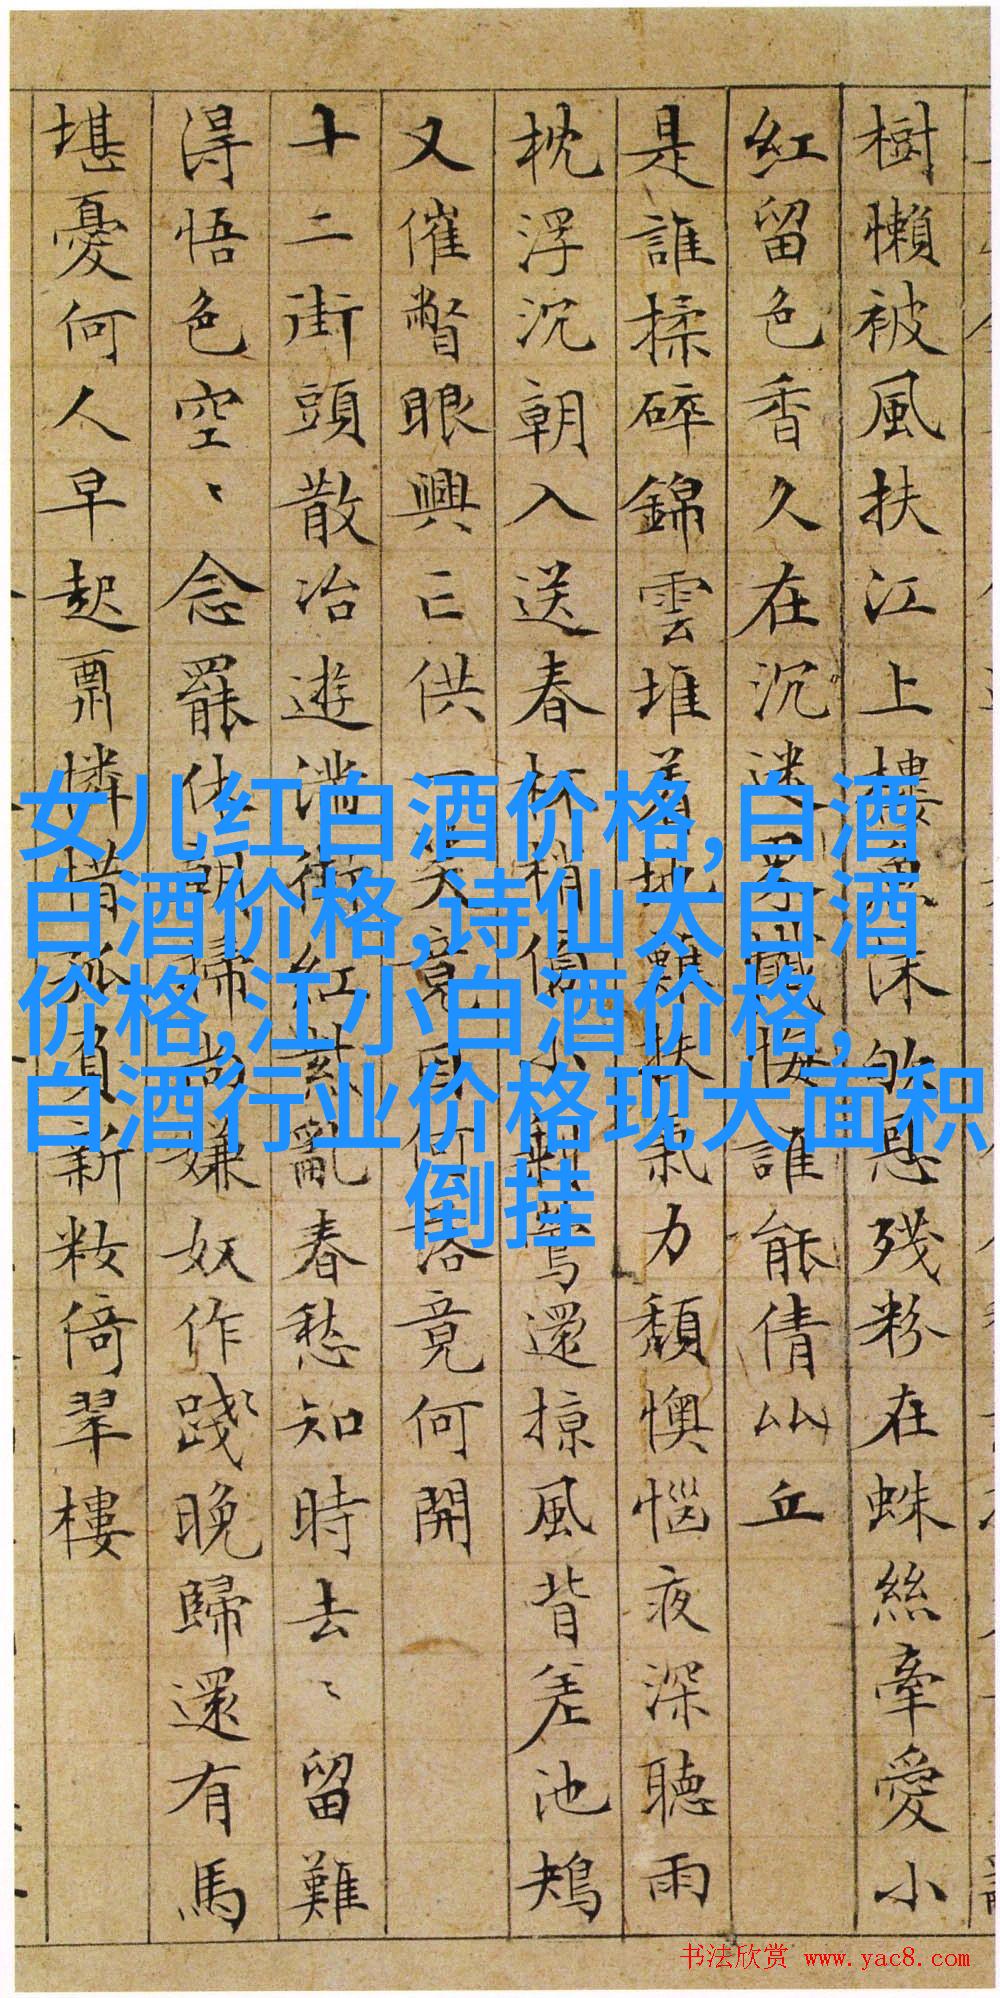 樹懶被風扶江上樓
殘粉在蛛絲牽愛小
紅留色香久在沉迷
誰能倩丘
是誰揉碎錦雲堆著地難扶氣力頹懊惱夜深聽雨
枕浮沉朝入送春杯梢
還掠風背差池鴂
又催瞥眼興亡供一笑竟
落竟何開
十二街頭散冶遊滿街紅紫亂春愁知時去〻留難
得悟色空〻念罷
嫌奴作踐晚歸還有馬
堪憂何人早起
憐惜孤負新妝倚翠樓
女儿红白酒价格,白酒
白酒价格,诗仙太白酒
价格,江小白酒价格,
白酒行业价格现大面积
倒挂
书法欣赏 www.yac8.com